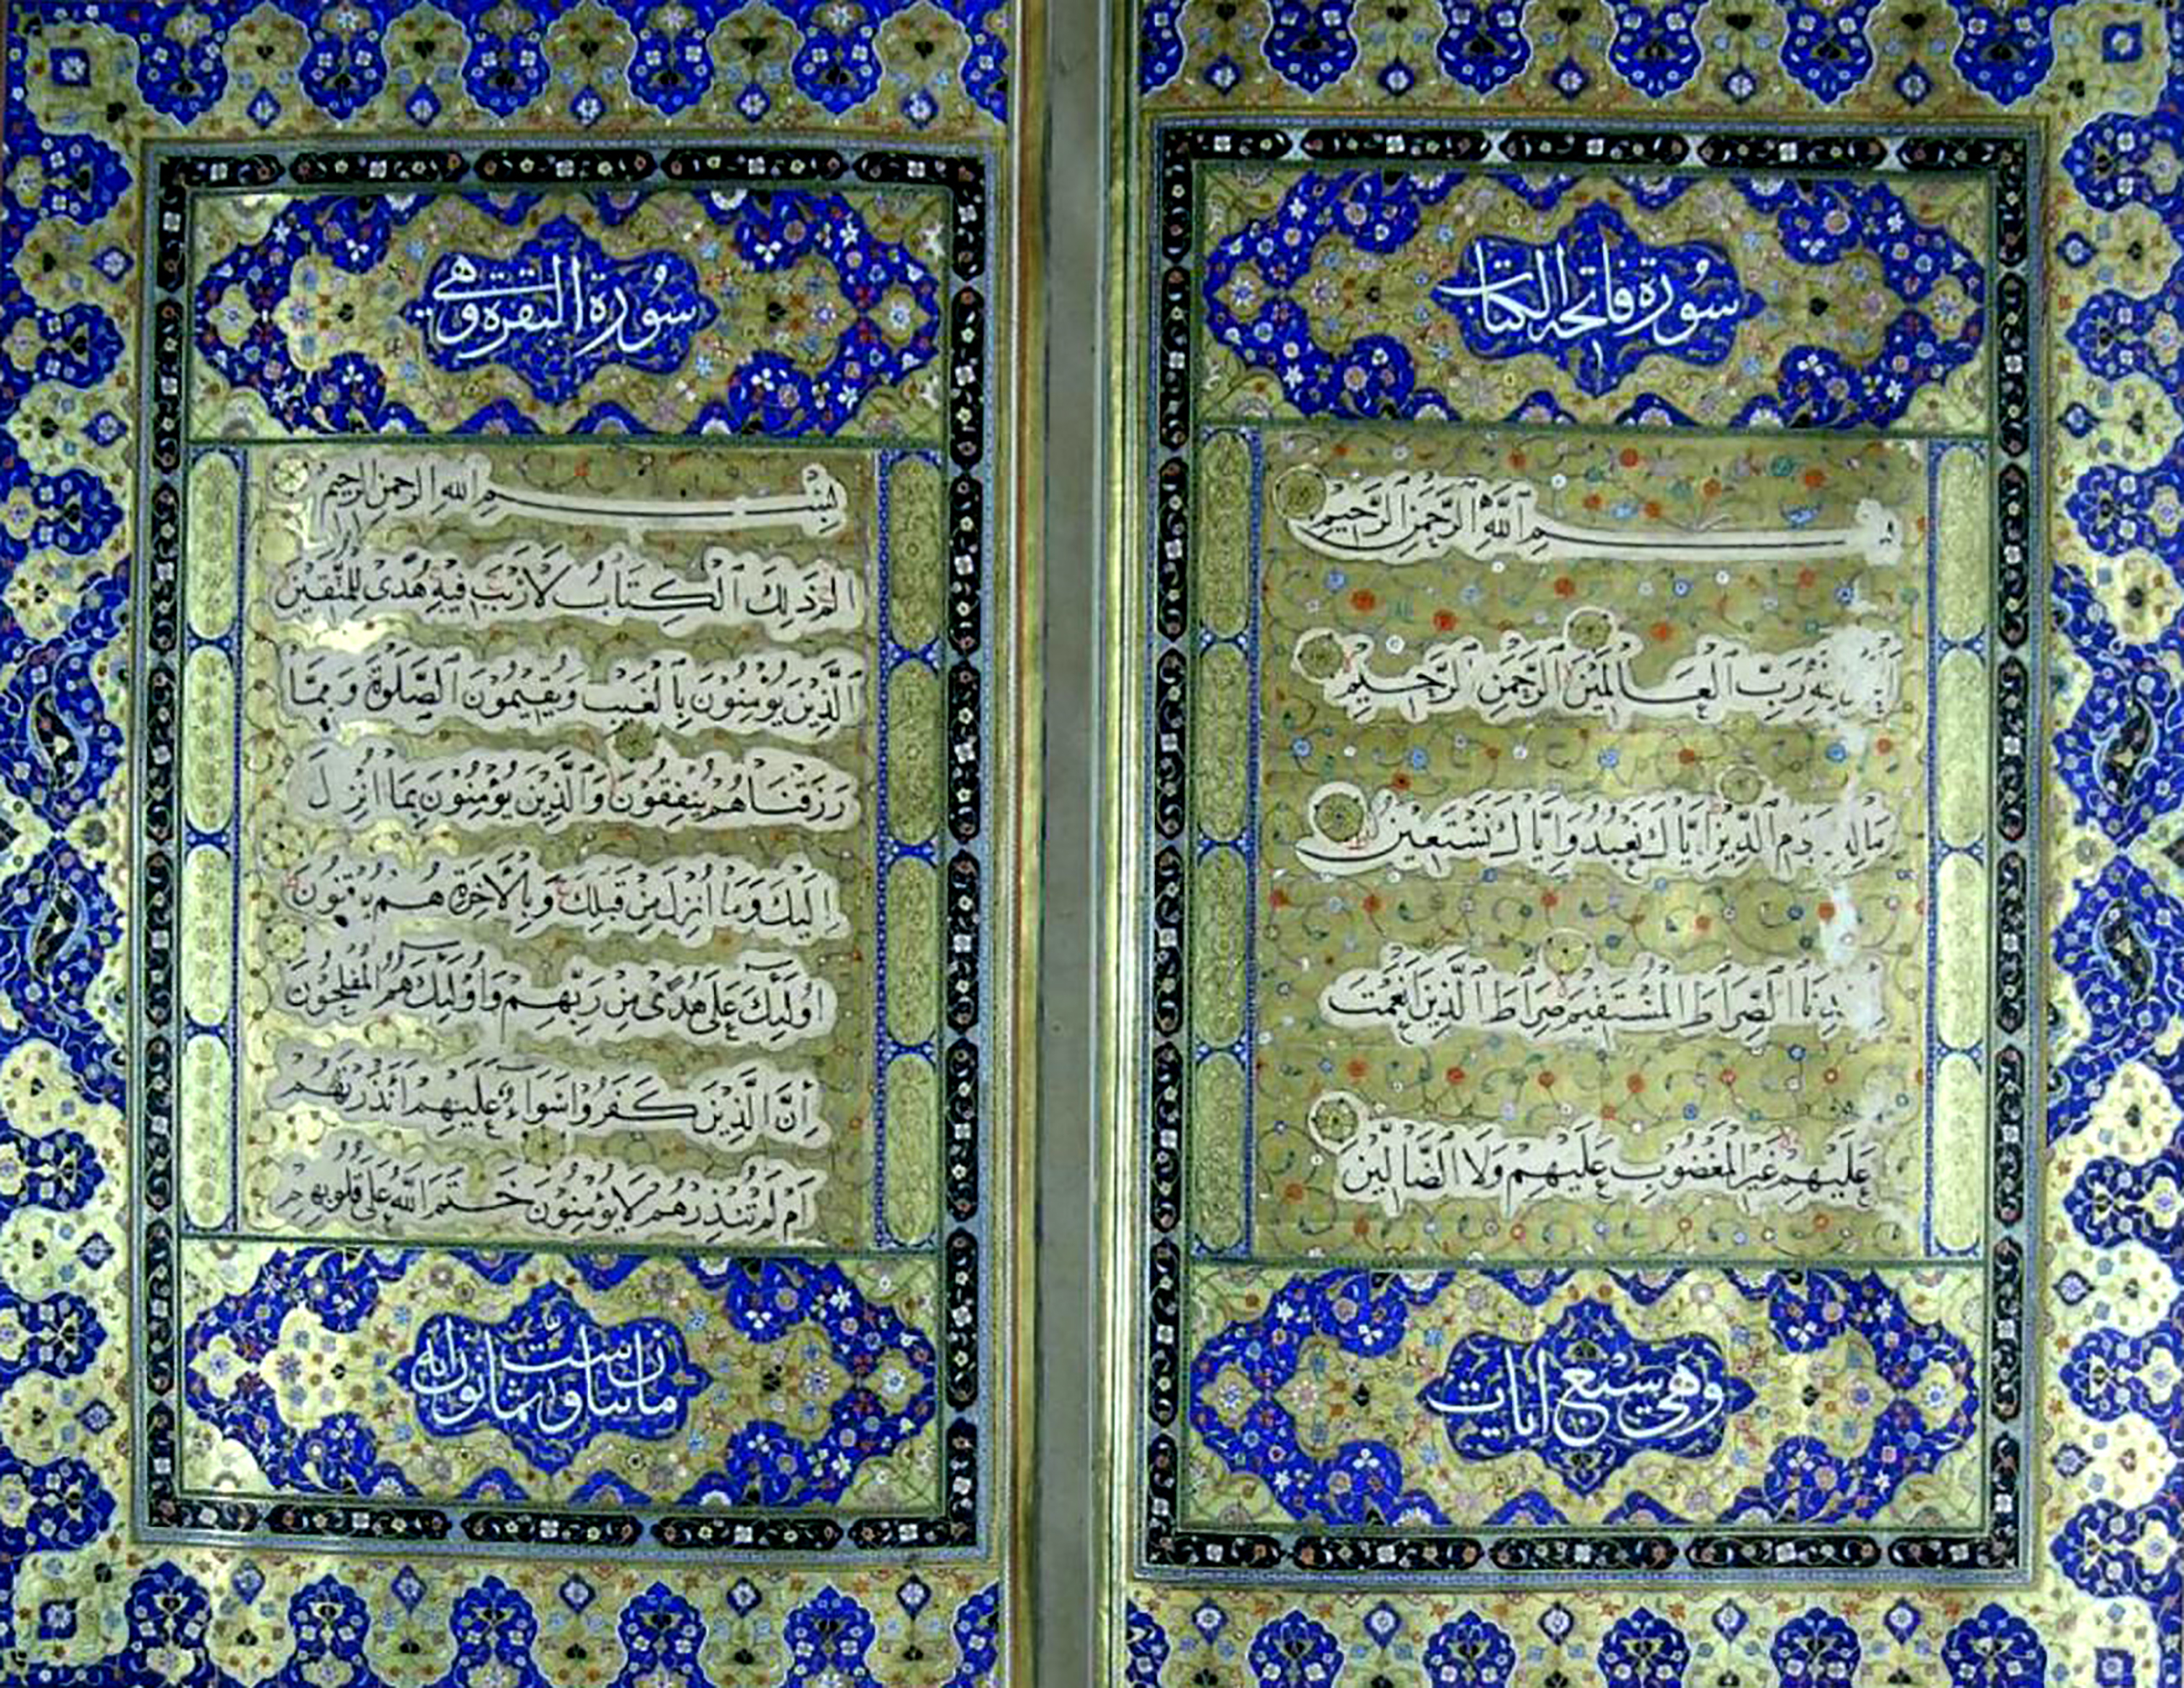 سورة فاتحة الكتاب
ـم ٱللَّهِ ٱلرَّحْمَنِ ٱلرَّحِيمِ
رَبِّ ٱلْعَالَمِينَ ٱلرَّحْمَنِ ٱلرَّحِيمِ
ٱلدِّينِ اِيَّاكَ نَعْبُدُ وَاِيَّاكَ نَسْتَعِينُ
ٱلصِّرَاطَ ٱلْمُسْتَقِيمَ صِرَاطَ ٱلَّذِينَ اَنْعَمْتَ
عَلَيْهِمْ غَيْرِ الْمَغْضُوبِ عَلَيْهِمْ وَلَا الضَّالِّينَ
وهي سبع ايات
سورة البقرة وهي
بسم الله الرحمن الرحيم
الم ذَلِكَ ٱلْكِتَابُ لَا رَيْبَ فِيهِ هُدًى لِلْمُتَّقِينَ
ٱلَّذِينَ يُؤْمِنُونَ بِٱلْغَيْبِ وَيُقِيمُونَ ٱلصَّلَوةَ وَمِمَّا
رَزَقْنَاهُمْ يُنْفِقُونَ وَٱلَّذِينَ يُؤْمِنُونَ بِمَا اُنْزِلَ
اِلَيْكَ وَمَا اُنْزِلَ مِنْ قَبْلِكَ وَبِالْاَخِرَةِ هُمْ يُوقِنُونَ
اُولَئِكَ عَلَى هُدًى مِنْ رَبِّهِمْ وَاُولَئِكَ هُمُ الْمُفْلِحُونَ
اِنَّ الَّذِينَ كَفَرُوا سَوَاءٌ عَلَيْهِمْ ءَاَنْذَرْتَهُمْ
اَمْ لَمْ تُنْذِرْهُمْ لَا يُؤْمِنُونَ خَتَمَ اللَّهُ عَلَى قُلُوبِهِمْ
مائتان وست وثمانون اية